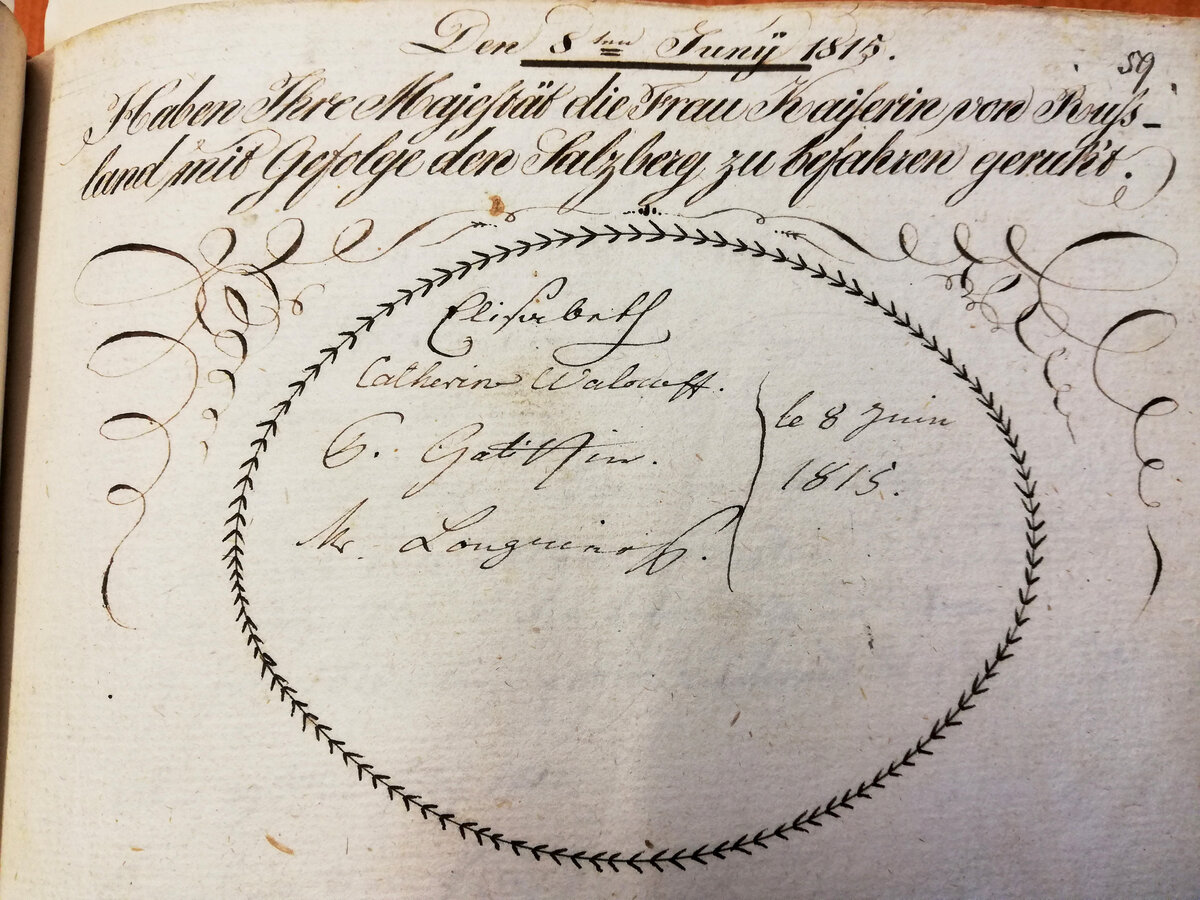 Den 8ten Junÿ 1815.
59
Haben Ihre Majestät die Frau Kaiserin von Russ-
land mit Gefolge den Salzberg zu befahren geruht.
Elisabeth
Catherine Walouеff.
le 8 Juin
1815.
G. Galitzin.
Longuinoff.